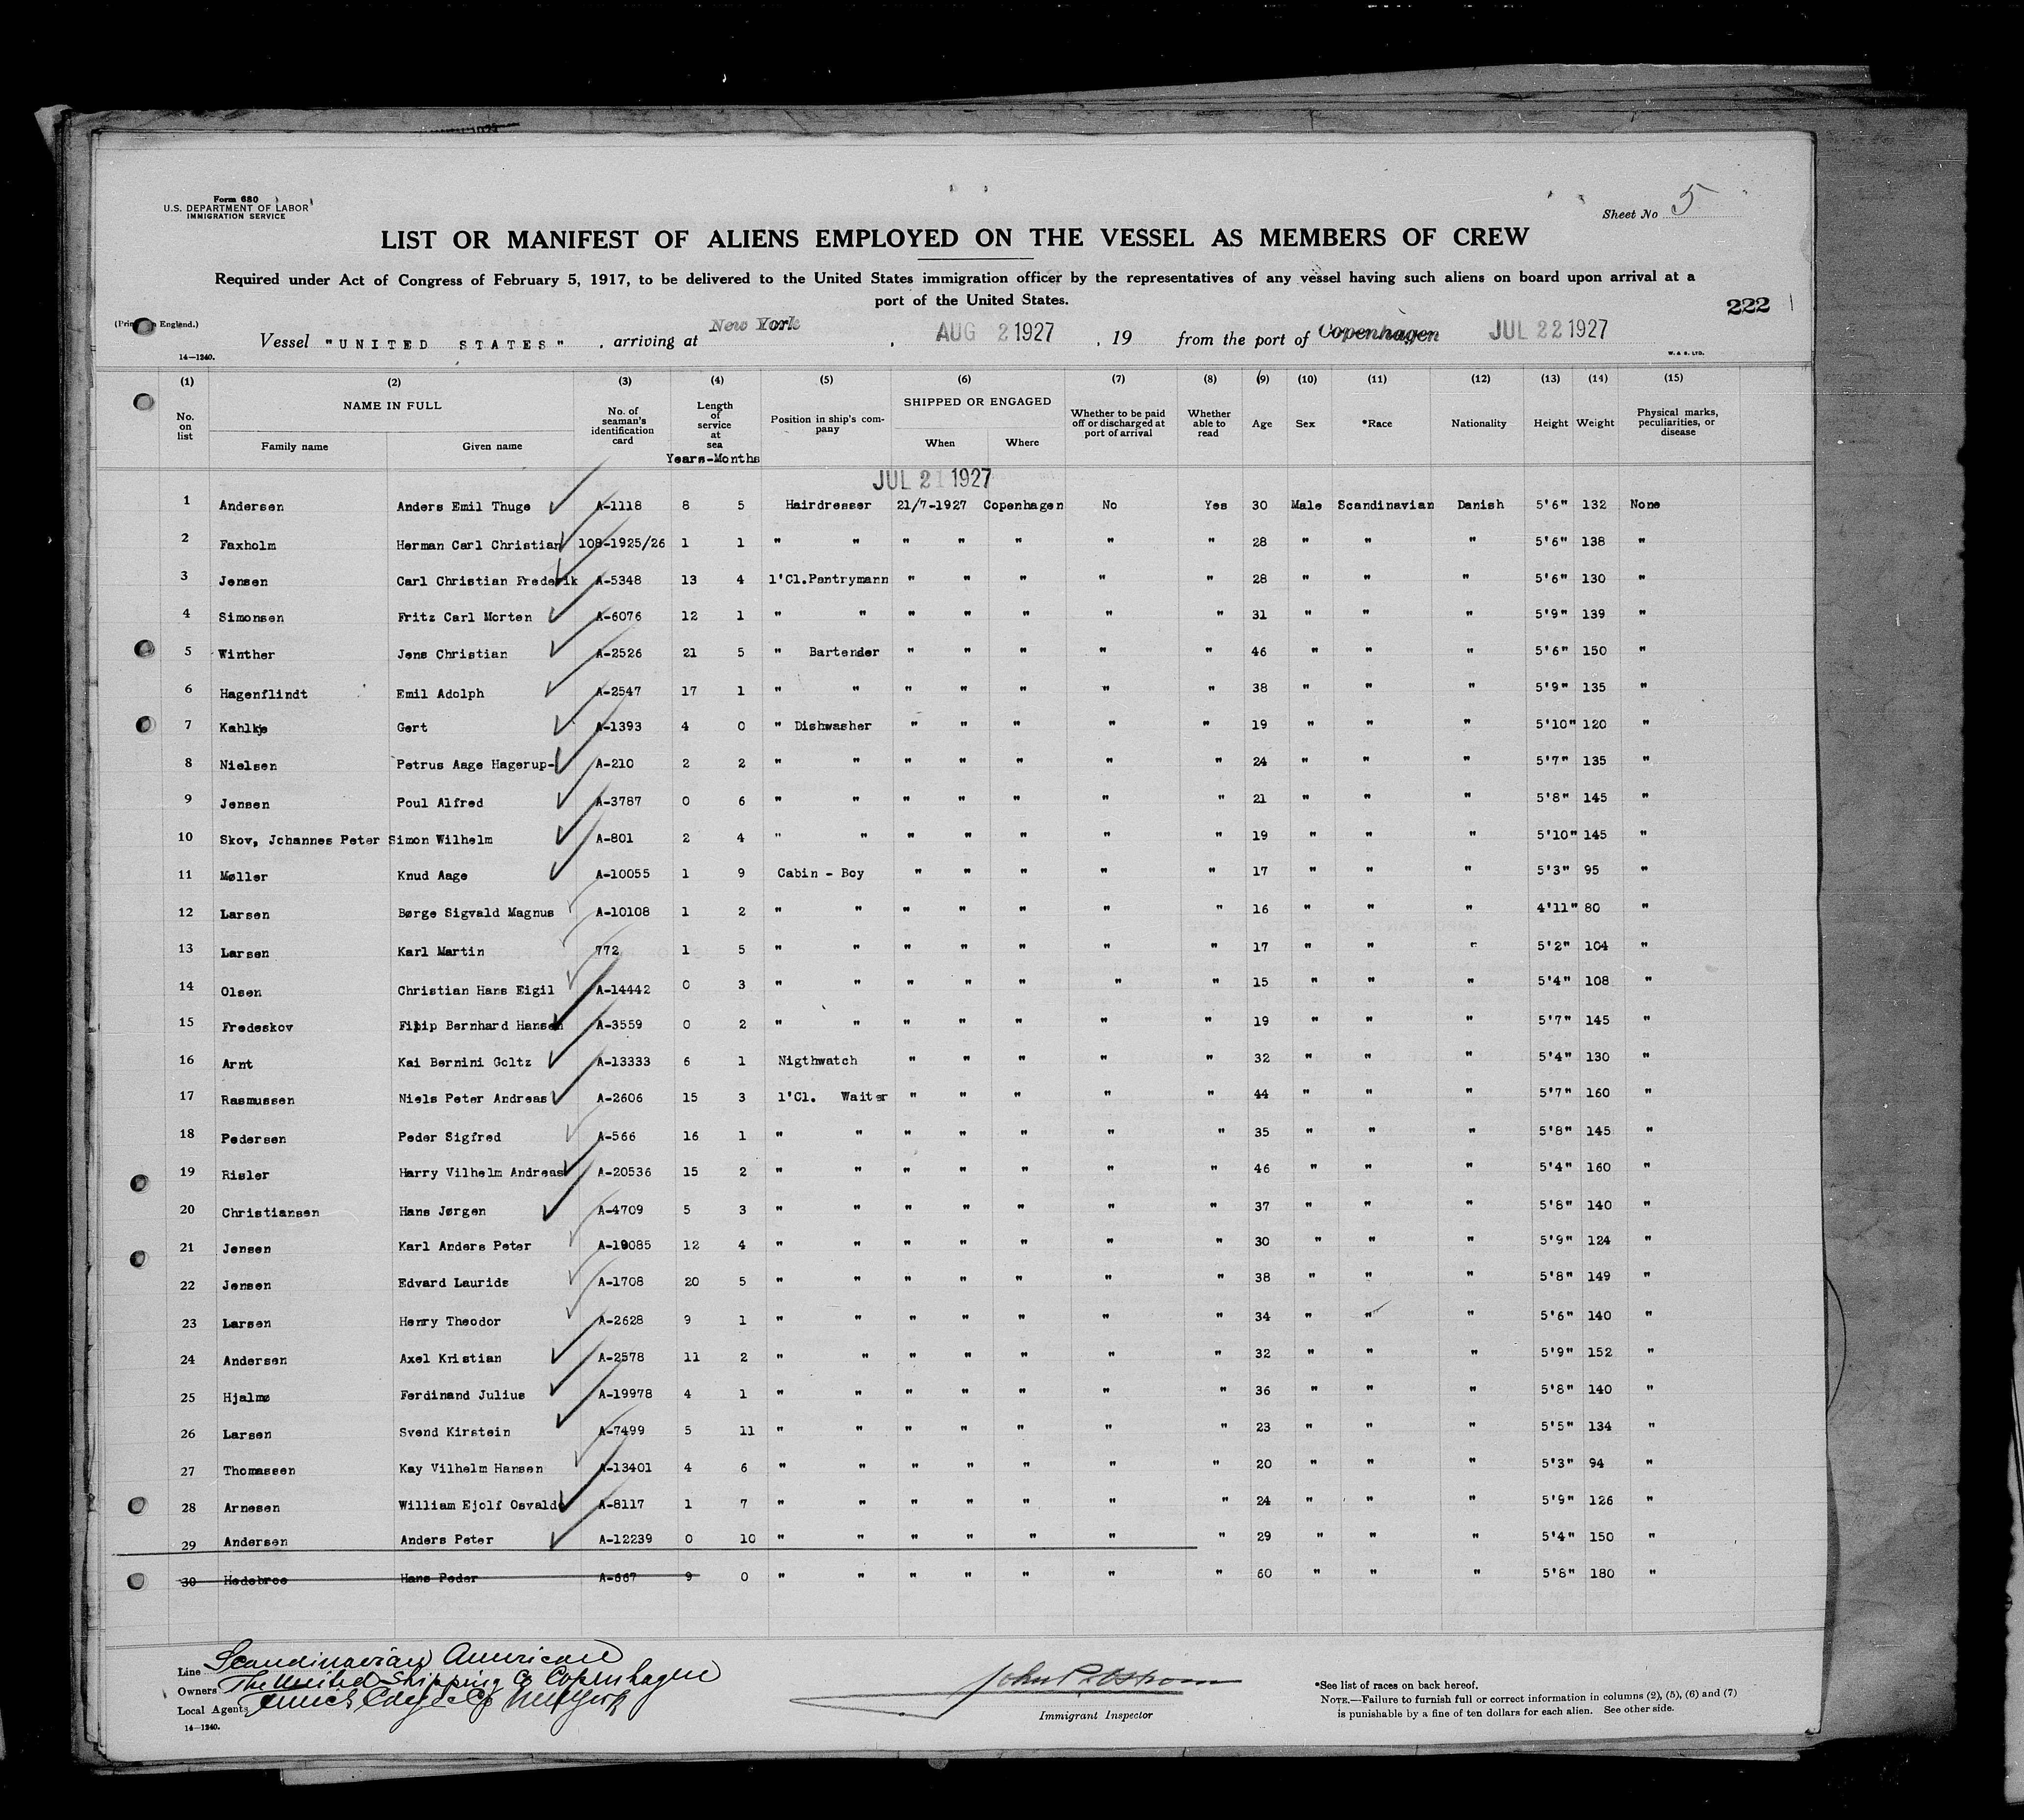 Form 680
U.S. DEPARTMENT OF LABOR
IMMIGRATION SERVICE
Sheet No 5
LIST OR MANIFEST OF ALIENS EMPLOYED ON THE VESSEL AS MEMBERS OF CREW
Required under Act of Congress of February 5, 1917, to be delivered to the United States immigration officer by the representatives of any vessel having such aliens on board upon arrival at a
port of the United States.
222
England.)
Vessel "UNITED STATES" , arriving at New York , AUG 2 1927 , 19 from the port of Copenhagen JUL 22 1927
14—1240.
W. & S. LTD.
(1) (2) (3) (4) (5) (6) (7) (8) (9) (10) (11) (12) (13) (14) (15)
No. on list NAME IN FULL Family name Given name No. of seaman's identification card Length of service at sea Years-Months Position in ship's company SHIPPED OR ENGAGED When Where Whether to be paid off or discharged at port of arrival Whether able to read Age Sex *Race Nationality Height Weight Physical marks, peculiarities, or disease
JUL 21 1927
1 Andersen Anders Emil Thuge A-1118 8 5 Hairdresser 21/7-1927 Copenhagen No Yes 30 Male Scandinavian Danish 5'6" 132 None
2 Faxholm Herman Carl Christian 108-1925/26 1 1 " " " " " " 28 " " " 5'6" 138 "
3 Jensen Carl Christian Frederik A-5348 13 4 1'Cl.Pantrymann " " " " 28 " " " 5'6" 130 "
4 Simonsen Fritz Carl Morten A-6076 12 1 " " " " " " 31 " " " 5'9" 139 "
5 Winther Jens Christian A-2526 21 5 " Bartender " " " " 46 " " " 5'6" 150 "
6 Hagenflindt Emil Adolph A-2547 17 1 " " " " " " 38 " " " 5'9" 135 "
7 Kahlke Gert A-1393 4 0 " Dishwasher " " " " 19 " " " 5'10" 120 "
8 Nielsen Petrus Aage Hagerup- A-210 2 2 " " " " " " 24 " " " 5'7" 135 "
9 Jensen Poul Alfred A-3787 0 6 " " " " " " 21 " " " 5'8" 145 "
10 Skov, Johannes Peter Simon Wilhelm A-801 2 4 " " " " " " 19 " " " 5'10" 145 "
11 Møller Knud Aage A-10055 1 9 Cabin - Boy " " " " 17 " " " 5'3" 95 "
12 Larsen Børge Sigvald Magnus A-10108 1 2 " " " " " " 16 " " " 4'11" 80 "
13 Larsen Karl Martin 772 1 5 " " " " " " 17 " " " 5'2" 104 "
14 Olsen Christian Hans Eigil A-14442 0 3 " " " " " " 15 " " " 5'4" 108 "
15 Fredeskov Filip Bernhard Hansen A-3559 0 2 " " " " " " 19 " " " 5'7" 145 "
16 Arnt Kai Bernini Goltz A-13333 6 1 Nigthwatch " " " " 32 " " " 5'4" 130 "
17 Rasmussen Niels Peter Andreas A-2606 15 3 1'Cl. Waiter " " " " 44 " " " 5'7" 160 "
18 Pedersen Peder Sigfred A-566 16 1 " " " " " " 35 " " " 5'8" 145 "
19 Risler Harry Vilhelm Andreas A-20536 15 2 " " " " " " 46 " " " 5'4" 160 "
20 Christiansen Hans Jørgen A-4709 5 3 " " " " " " 37 " " " 5'8" 140 "
21 Jensen Karl Anders Peter A-19085 12 4 " " " " " " 30 " " " 5'9" 124 "
22 Jensen Edvard Laurids A-1708 20 5 " " " " " " 38 " " " 5'8" 149 "
23 Larsen Henry Theodor A-2628 9 1 " " " " " " 34 " " " 5'6" 140 "
24 Andersen Axel Kristian A-2578 11 2 " " " " " " 32 " " " 5'9" 152 "
25 Hjalmø Ferdinand Julius A-19978 4 1 " " " " " " 36 " " " 5'8" 140 "
26 Larsen Svend Kirstein A-7499 5 11 " " " " " " 23 " " " 5'5" 134 "
27 Thomassen Kay Vilhelm Hansen A-13401 4 6 " " " " " " 20 " " " 5'3" 94 "
28 Arnesen William Ejolf Osvald A-8117 1 7 " " " " " " 24 " " " 5'9" 126 "
29 Andersen Anders Peter A-12239 0 10 " " " " " " 29 " " " 5'4" 150 "
30 Hedebroe Hans Peder A-667 9 0 " " " " " " 60 " " " 5'8" 180 "
Line Scandinavian American
Owners The United Shipping Co Copenhagen
Local Agents New York
14—1240.
Immigrant Inspector
*See list of races on back hereof.
NOTE.—Failure to furnish full or correct information in columns (2), (5), (6) and (7)
is punishable by a fine of ten dollars for each alien. See other side.